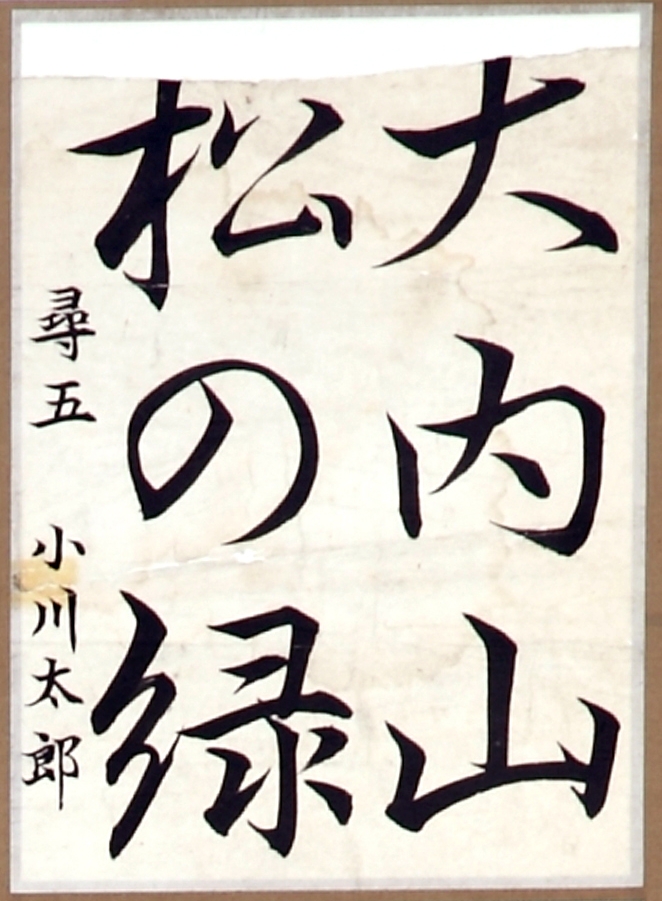 大内山
松の緑
尋五 小川太郎